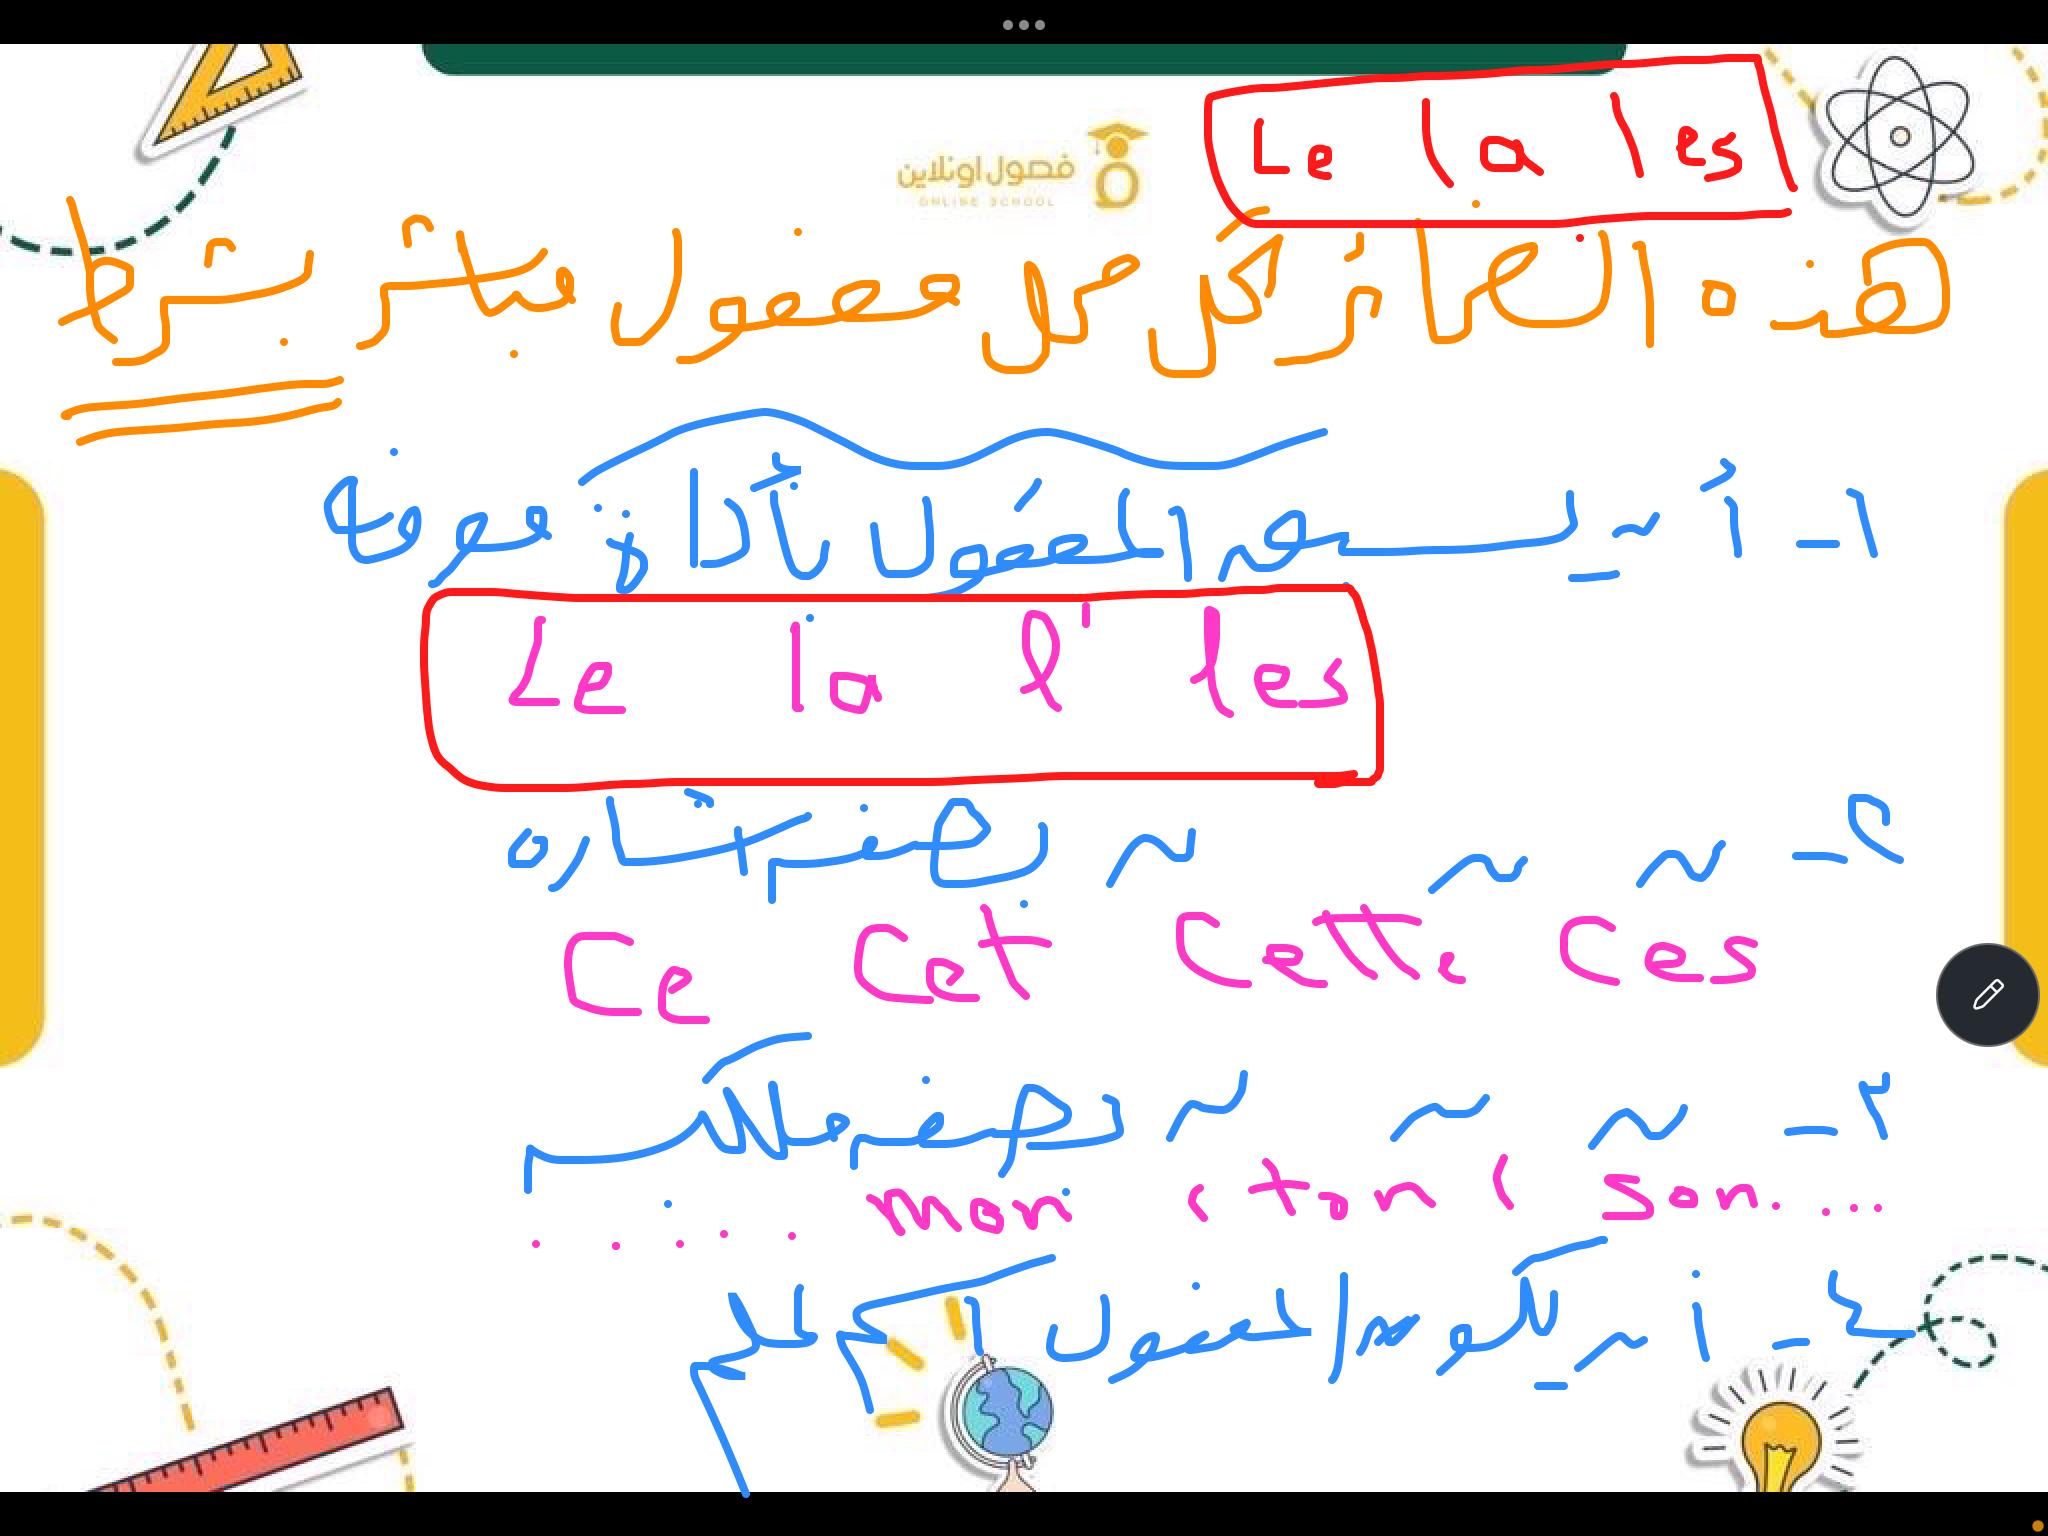 Le la les
فصول اونلاين
ONLINE SCHOOL
هذه الضمائر تحل محل مفعول مباشر بشرط
١- أن يسبق المفعول بأداة معرفة
Le la l' les
٢- ~ ~ ~ بصفة إشارة
Ce Cet Cette Ces
٣- ~ ~ ~ بصفة ملكية
..... mon ، ton ، son....
٤- أن يكون المفعول اسم علم